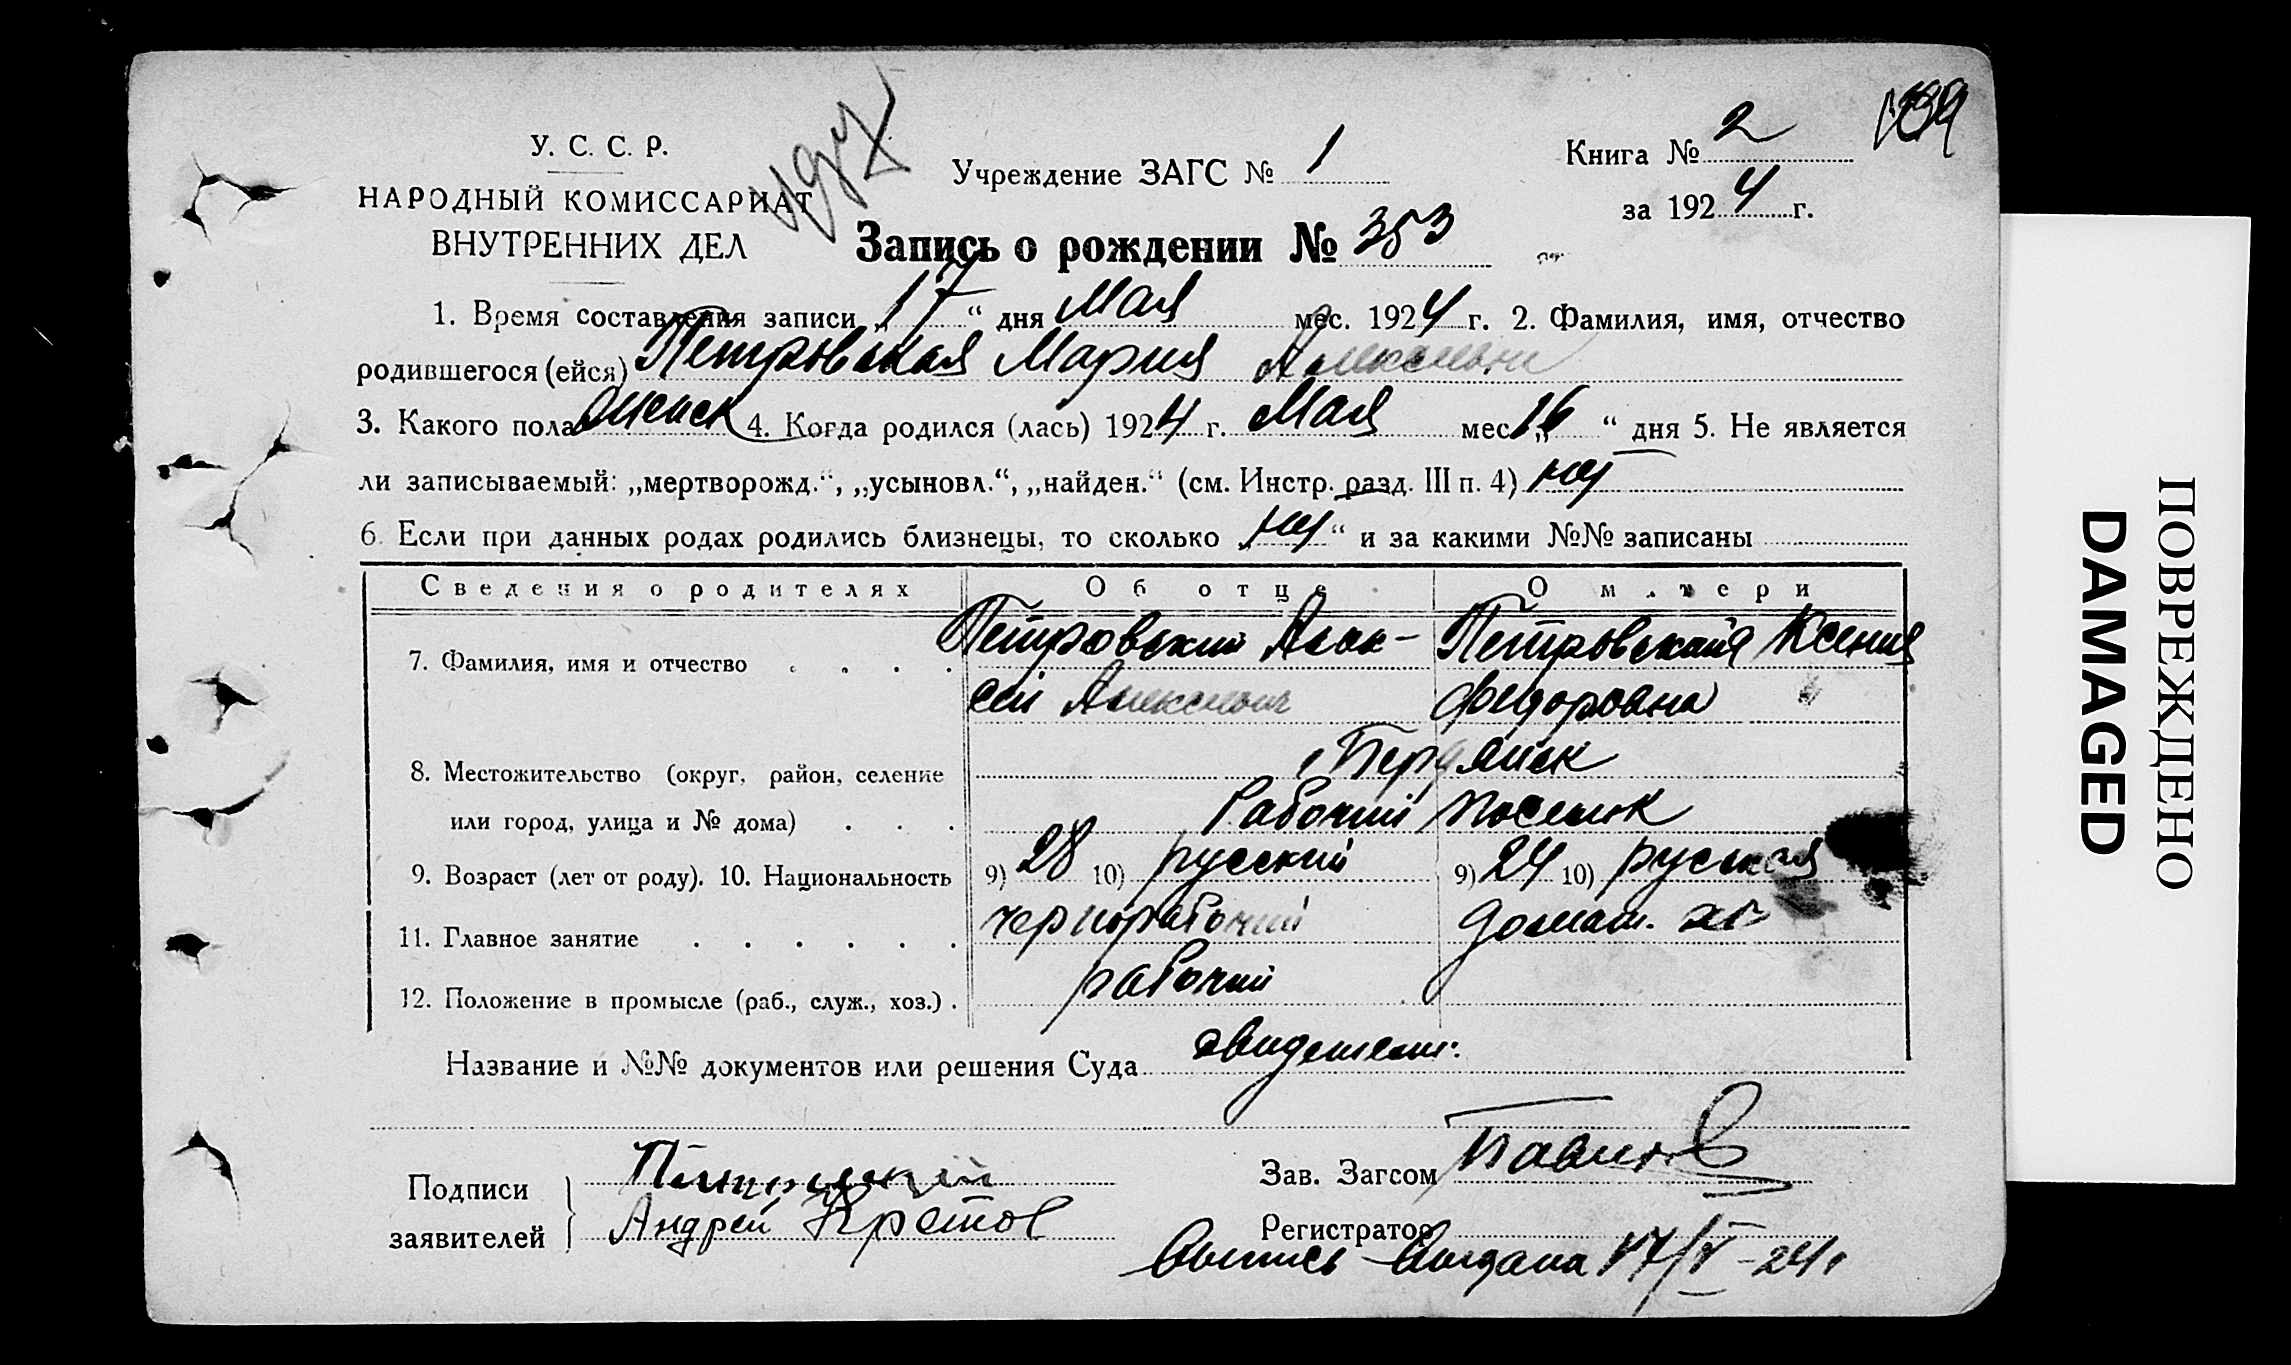 У. С. С. Р.
НАРОДНЫЙ КОМИССАРИАТ
ВНУТРЕННИХ ДЕЛ
Учреждение ЗАГС № 1
Книга № 2
за 1924 г.
Запись о рождении № 353
1. Время составления записи „17“ дня Мая мес. 1924 г. 2. Фамилия, имя, отчество
родившегося (ейся) Петровская Мария
3. Какого пола женск 4. Когда родился (лась) 1924 г. Мая мес. „16“ дня 5. Не является
ли записываемый: „мертворожд.“, „усыновл.“, „найден.“ (см. Инстр. разд. III п. 4) нет
6. Если при данных родах родились близнецы, то сколько „нет“ и за какими №№ записаны
Сведения о родителях Об отце О матери
7. Фамилия, имя и отчество . . . . Петровский Алек- Петровская Ксения
сей Алексеевич Федоровна
8. Местожительство (округ, район, селение г. Бердянск
или город, улица и № дома) . . . Рабочий поселок
9. Возраст (лет от роду). 10. Национальность 9) 28 10) русский 9) 24 10) русская
11. Главное занятие . . . . . . чернорабочий домаш. хоз
12. Положение в промысле (раб., служ., хоз.) . рабочий
Название и №№ документов или решения Суда свидетели:
Подписи
заявителей
Петровский
Андрей Кретов
Зав. Загсом
Регистратор
Выпись выдана 17/V-24 г.
ПОВРЕЖДЕНО
DAMAGED